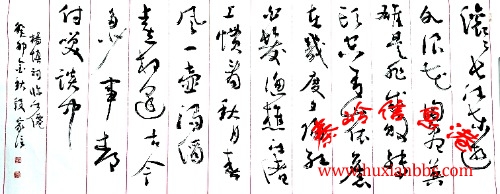 滚滚长江东逝
水浪花淘尽英
雄是非成败转
头空青山依旧
在几度夕阳红
白发渔樵江渚
上惯看秋月春
风一壶浊酒
喜相逢古今
多少事都
付笑谈中
杨慎词临江仙
癸卯金秋
www.huxianbbs.